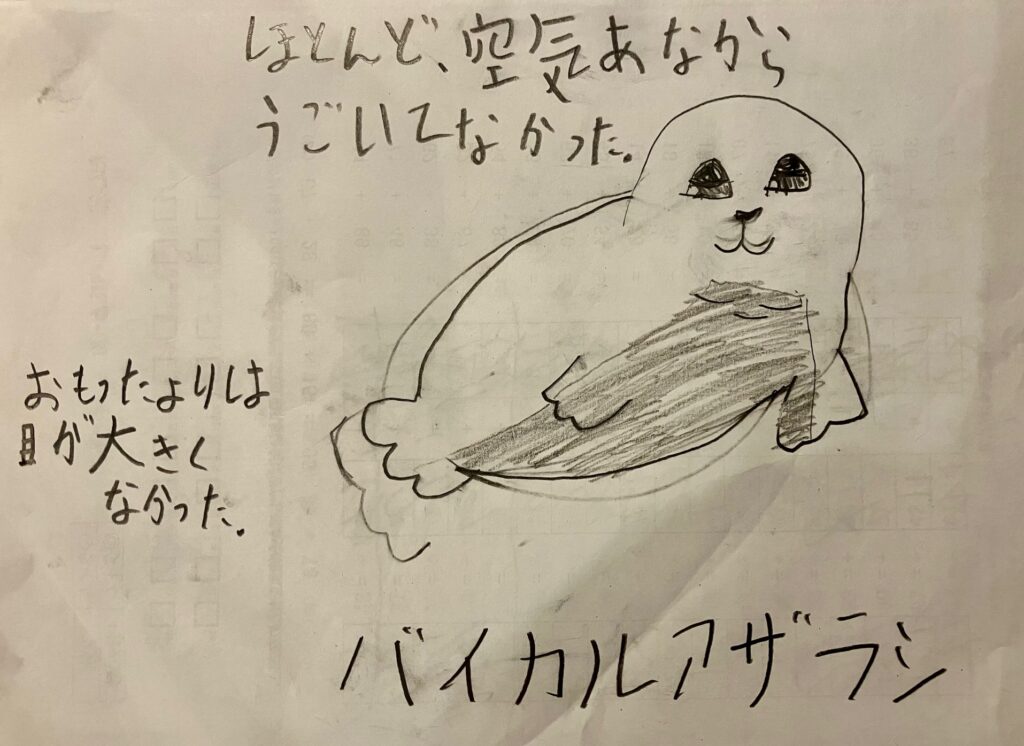 ほとんど、空気あなから
うごいてなかった。
おもったよりは
目が大きく
なかった。
バイカルアザラシ